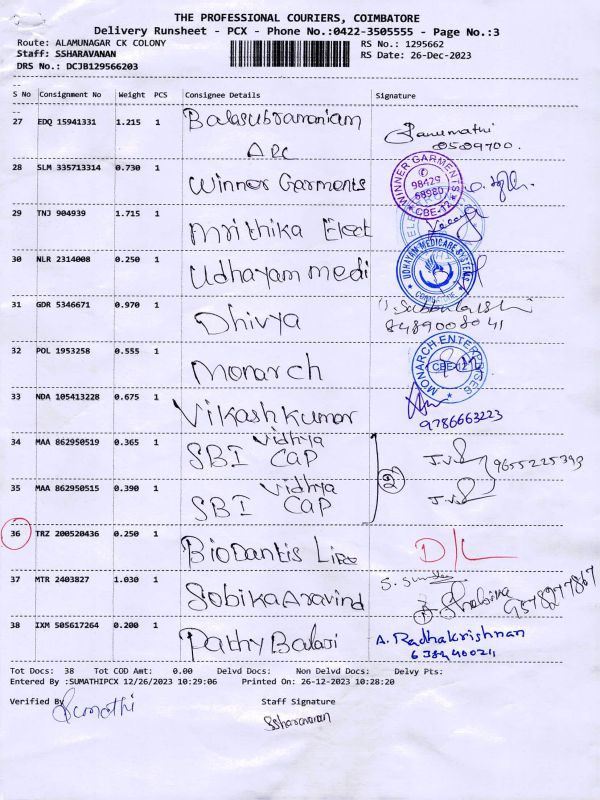 THE PROFESSIONAL COURIERS, COIMBATORE
Delivery Runsheet - PCX - Phone No.:0422-3505555 - Page No.:3
Route: ALAMUNAGAR CK COLONY RS No.: 1295662
Staff: SSHARAVANAN RS Date: 26-Dec-2023
DRS No.: DCJB129566203
S No Consignment No Weight PCS Consignee Details Signature
27 EDQ 15941331 1.215 1 Balasubramaniam Banumathi
28 SLM 335713314 0.730 1 Winner Garments WINNER GARMENTS 98429 68980 CBE-12
29 TNJ 904939 1.715 1 Mrithika Elect
30 NLR 2314008 0.250 1 Udhayam medi UDHAYAM MEDICARE SYSTEMS
31 GDR 5346671 0.970 1 Dhivya 8489008041
32 POL 1953258 0.555 1 Monarch MONARCH ENTERPRISES CBE-12
33 NDA 105413228 0.675 1 Vikash kumar 9786663223
34 MAA 862950519 0.365 1 Vidhya SBI Cap
35 MAA 862950515 0.390 1 Vidhya SBI Cap 2 9655225393
36 TRZ 200520436 0.250 1 BioDantis Life D/L
37 MTR 2403827 1.030 1 Sobika Aravind
38 IXM 505617264 0.200 1 Pathy Balaji A. Radhakrishnan
Tot Docs: 38 Tot COD Amt: 0.00 Delvd Docs: Non Delvd Docs: Delvy Pts:
Entered By :SUMATHIPCX 12/26/2023 10:29:06 Printed On: 26-12-2023 10:28:20
Verified By Sumathi Staff Signature
SSharavanan